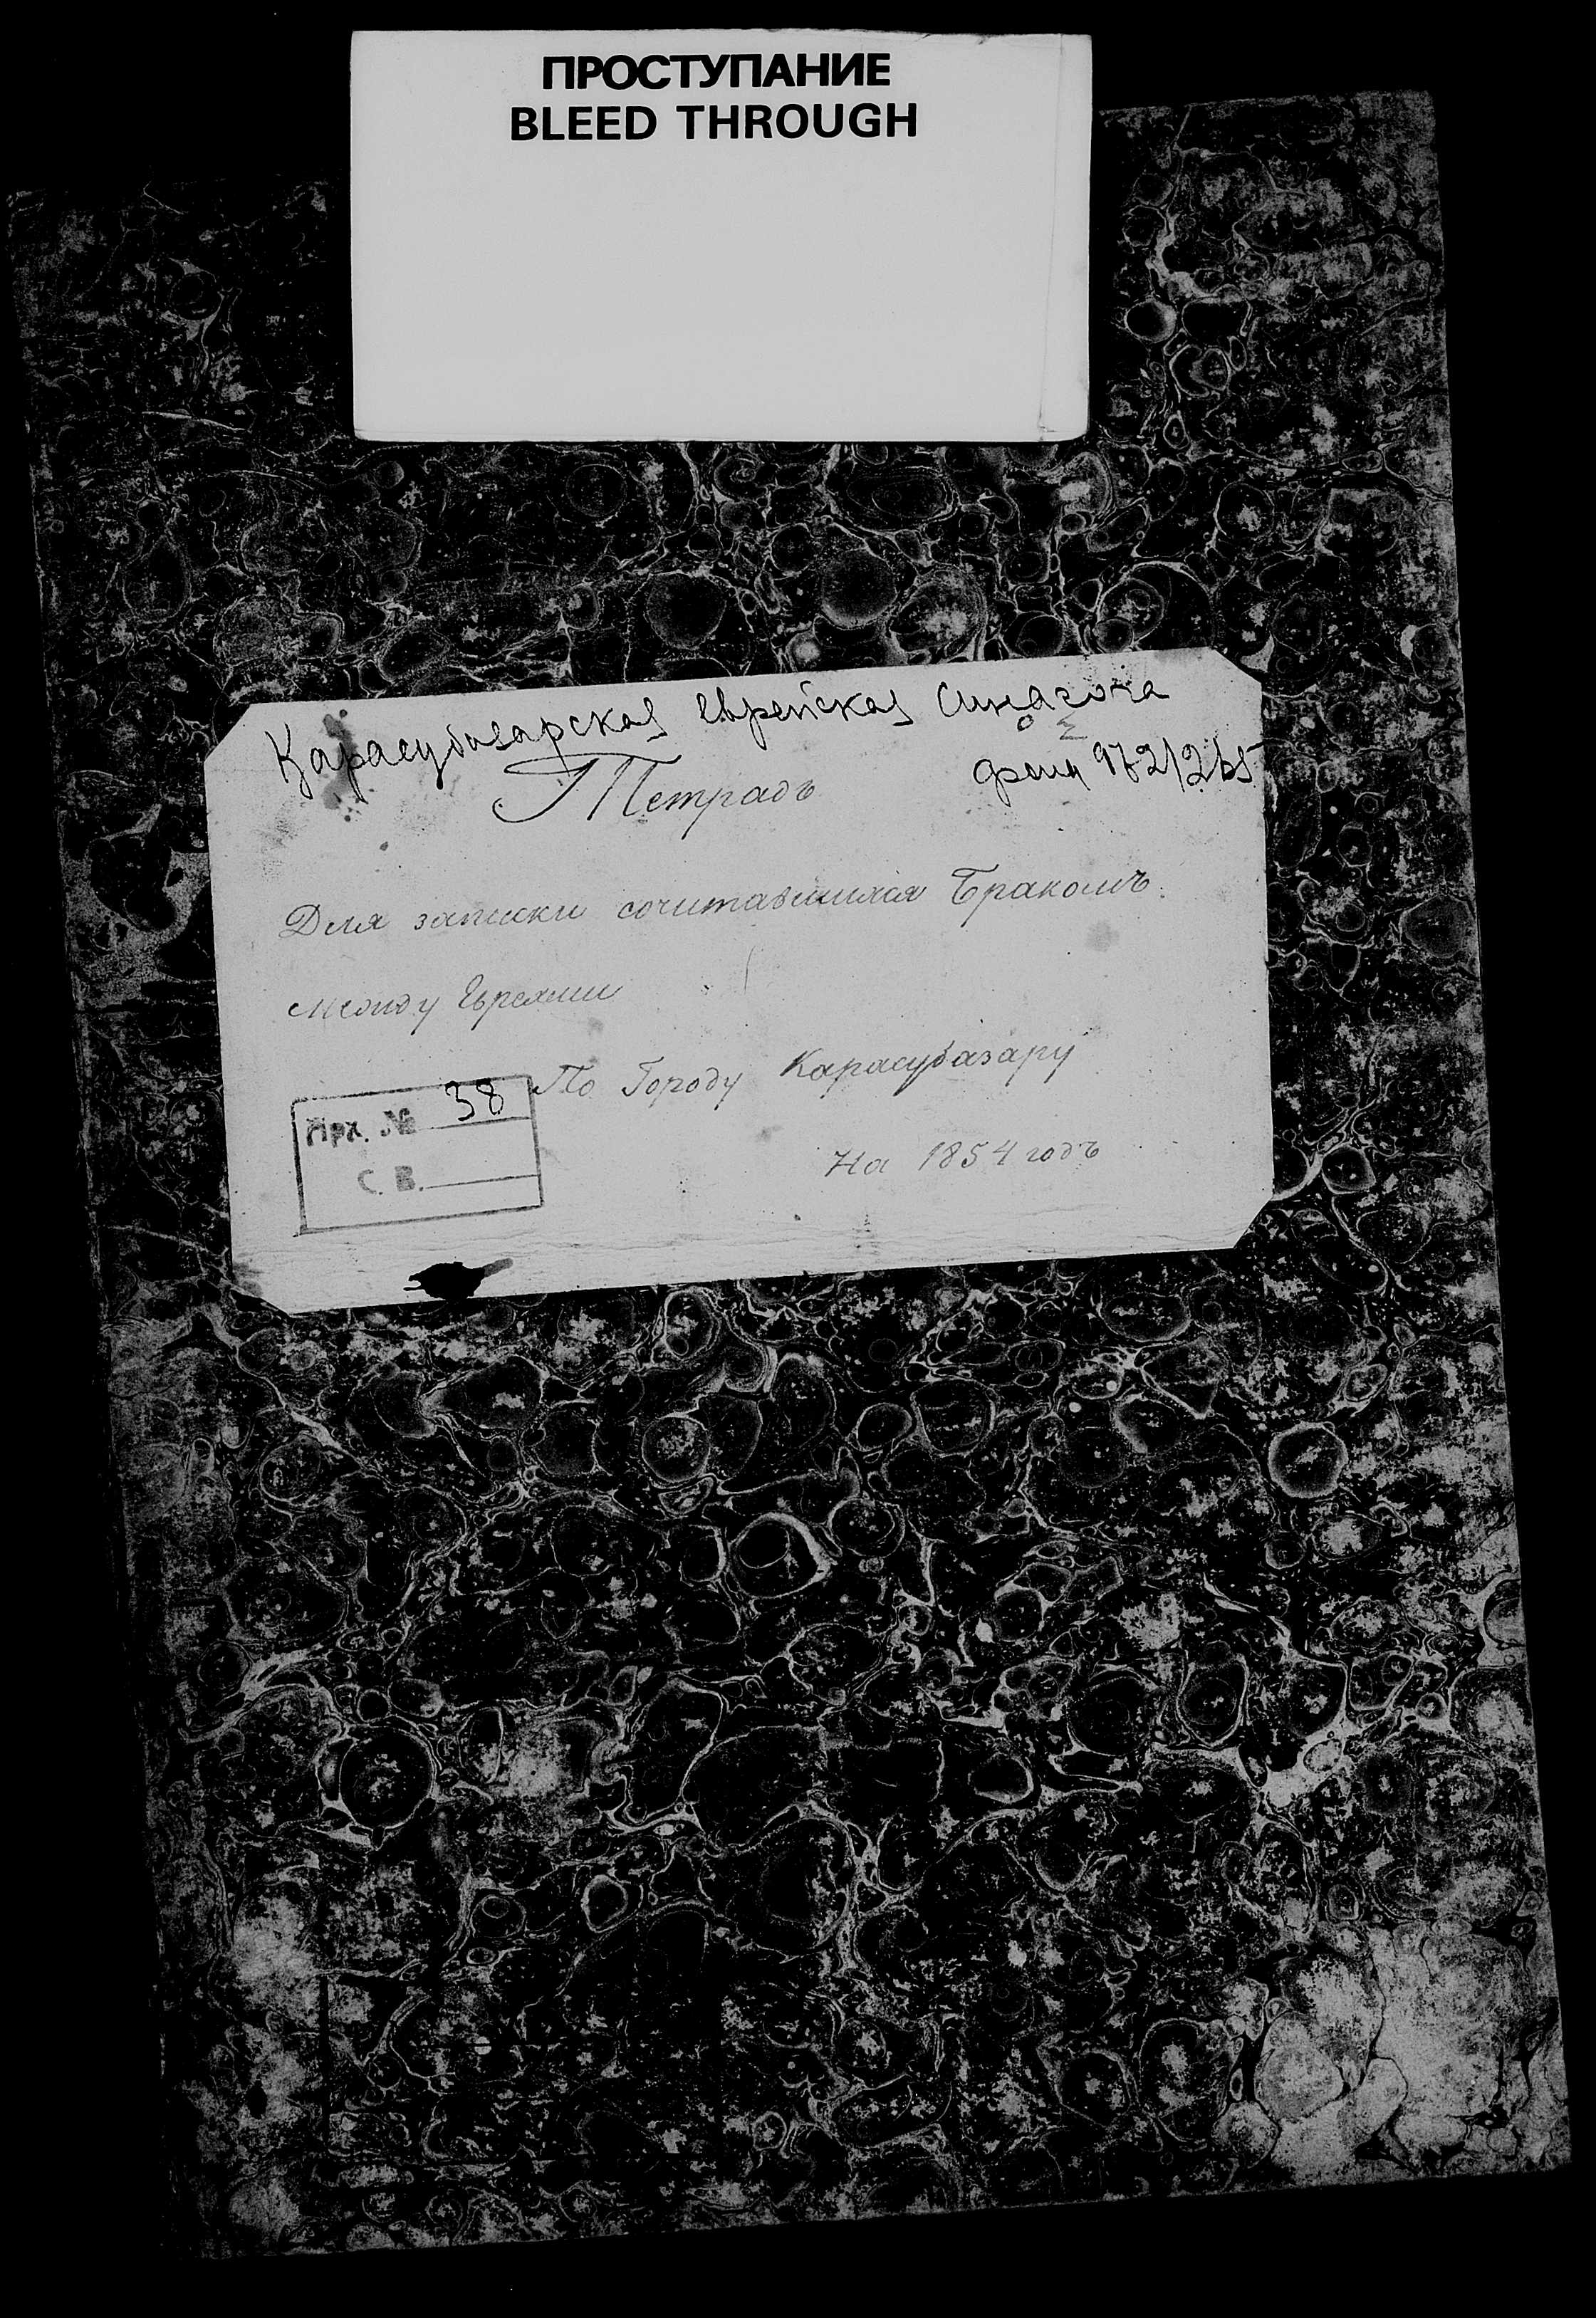 ПРОСТУПАНИЕ
BLEED THROUGH
Карасубазарская еврейская синагога
фонд
Тетрадь
Для записки сочитавшихся Бракомъ
между Евреями
По Городу Карасубазару
Арх. № 38
С. В.
На 1854 годъ